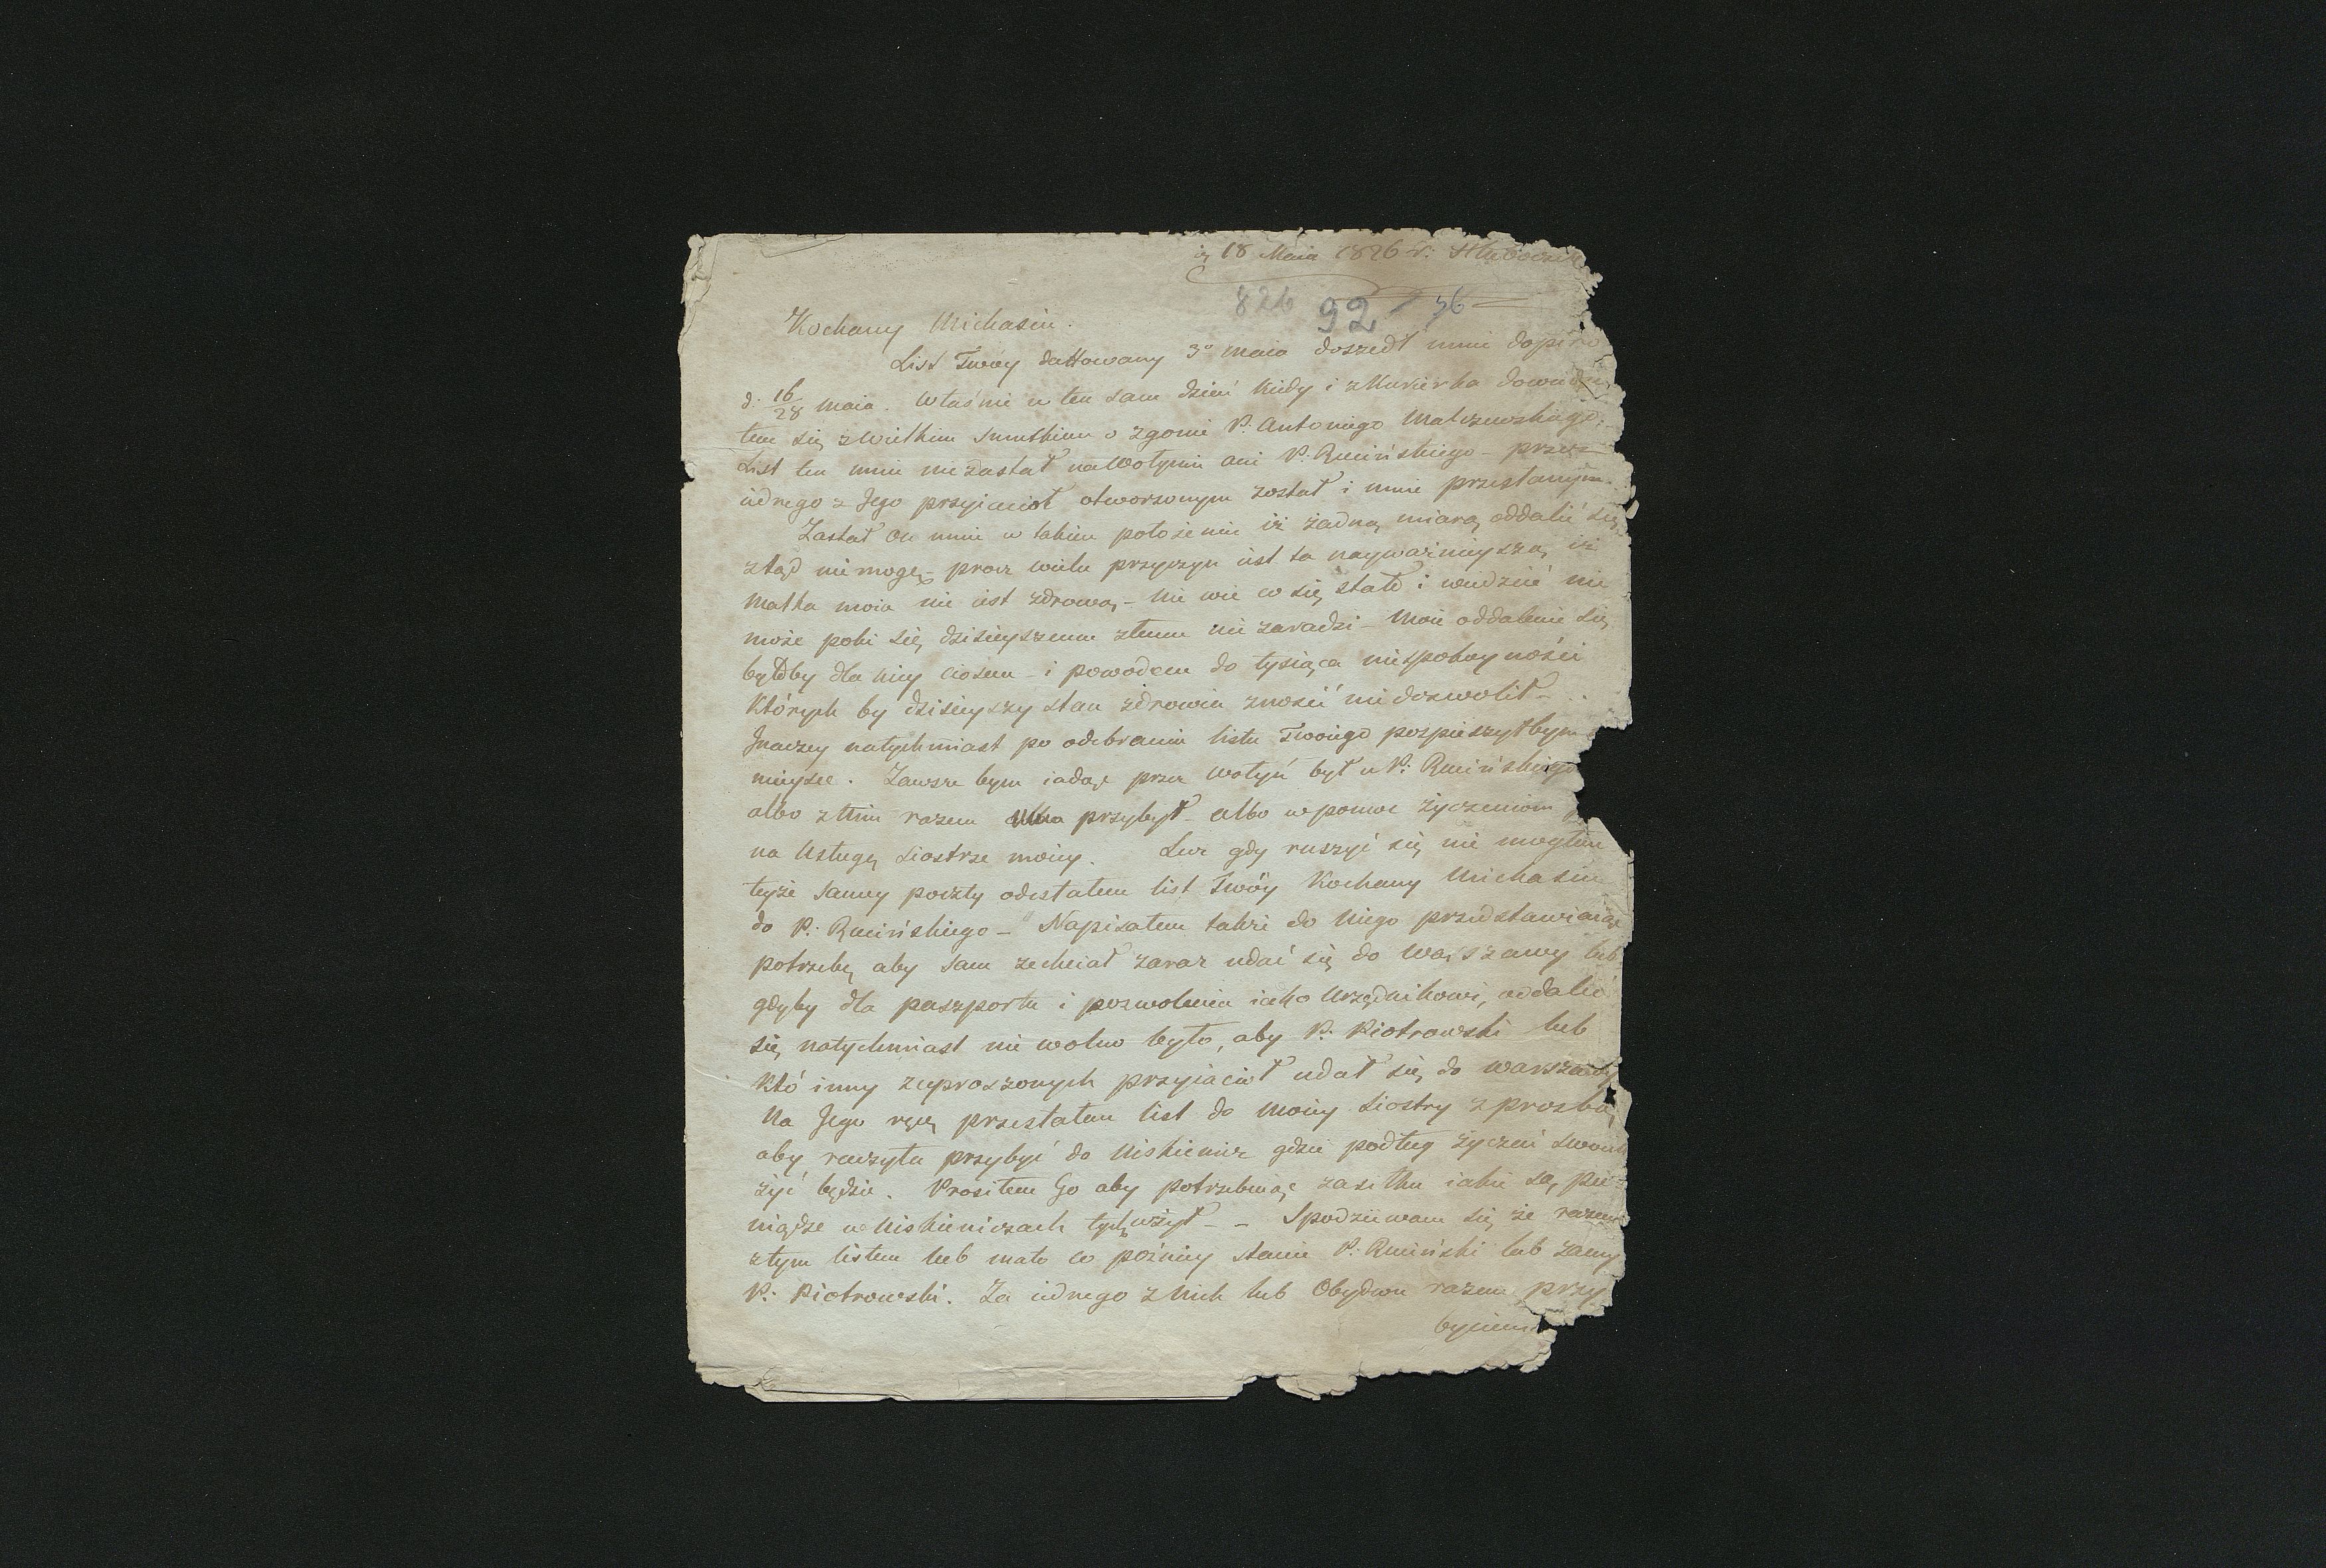 18 Maia 1826 r.
826 92 36
Kochany Michasiu.
List Twoy dattowany 3º maia doszedł mnie dopiro
d. 16/28 maia. Właśnie w ten sam dzień kiedy i z Kurierka dowiedzia
łem się z wielkim smutkiem o zgonie P. Antoniego Malczewskiego.
List ten mnie nie zastał na Wołyniu ani P. Rucińskiego – przez
iednego z Jego przyiaciół otworzonym został i mnie przesłanym.
Zastał on mnie w takiem położeniu iż żadną miarą oddalić się
ztąd nie mogę – prócz wielu przyczyn iest ta naywaźnieysza, iż
Matka moia nie iest zdrową – nie wie co się stało i wiedzieć nie
może poki się dzisieyszemu złemu nie zaradzi – Moie oddalenie się
byłoby dla niey ciosem – i powodem do tysiąca niespokoyności
których by dzisieyszy stan zdrowia znosić nie dozwolił –
Inaczey natychmiast po odebraniu listu Twoiego pospieszyłbym
mieysce. Zawsze bym iadąc przez Wołyń był u P: Rucińskiego
albo z Nim razem przybył – albo w pomoc życzeniom
na usługę siostrze moiey. Lecz gdy ruszyć się nie mogłem
teyże samey poczty odesłałem list Twóy Kochany Michasiu
do P. Rucińskiego – Napisałem także do Niego przedstawiaiąc
potrzebę aby sam zechciał zaraz udać się do Warszawy lub
gdyby dla paszportu i pozwolenia iako Urzędnikowi, oddalić
się natychmiast nie wolno było, aby P. Piotrowski lub
któ inny zaproszonych przyiaciół udał się do Warszawy
Na Jego ręce przesłałem list do Moiey Siostry z prozbą
aby raczyła przybyć do Niskienicz gdzie podług życzeń swoich
żyć będzie. Prosiłem Go aby potrzebuiąc zasiłku iakie są pie-
niądze w Niskieniczach tych użył – – Spodziewam się że razem
z tym listem lub mało co poźniey stanie P. Ruciński lub zacny
P. Piotrowski. Za iednego z Nich lub Obydwu razem przy
byciem